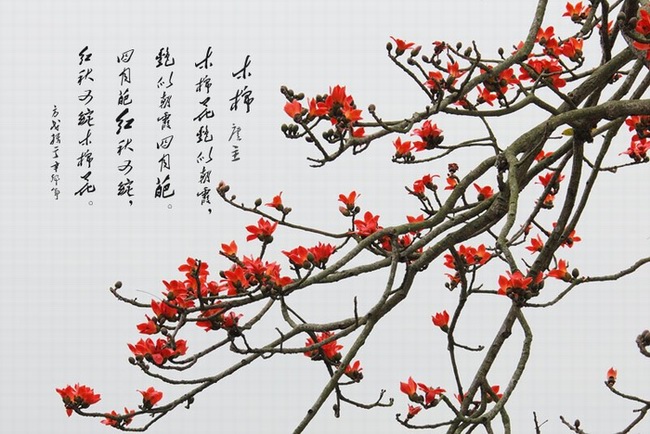 木棉
木棉花艳似朝霞，
艳似朝霞四月葩。
四月葩红秋又绽，
红秋又绽木棉花。